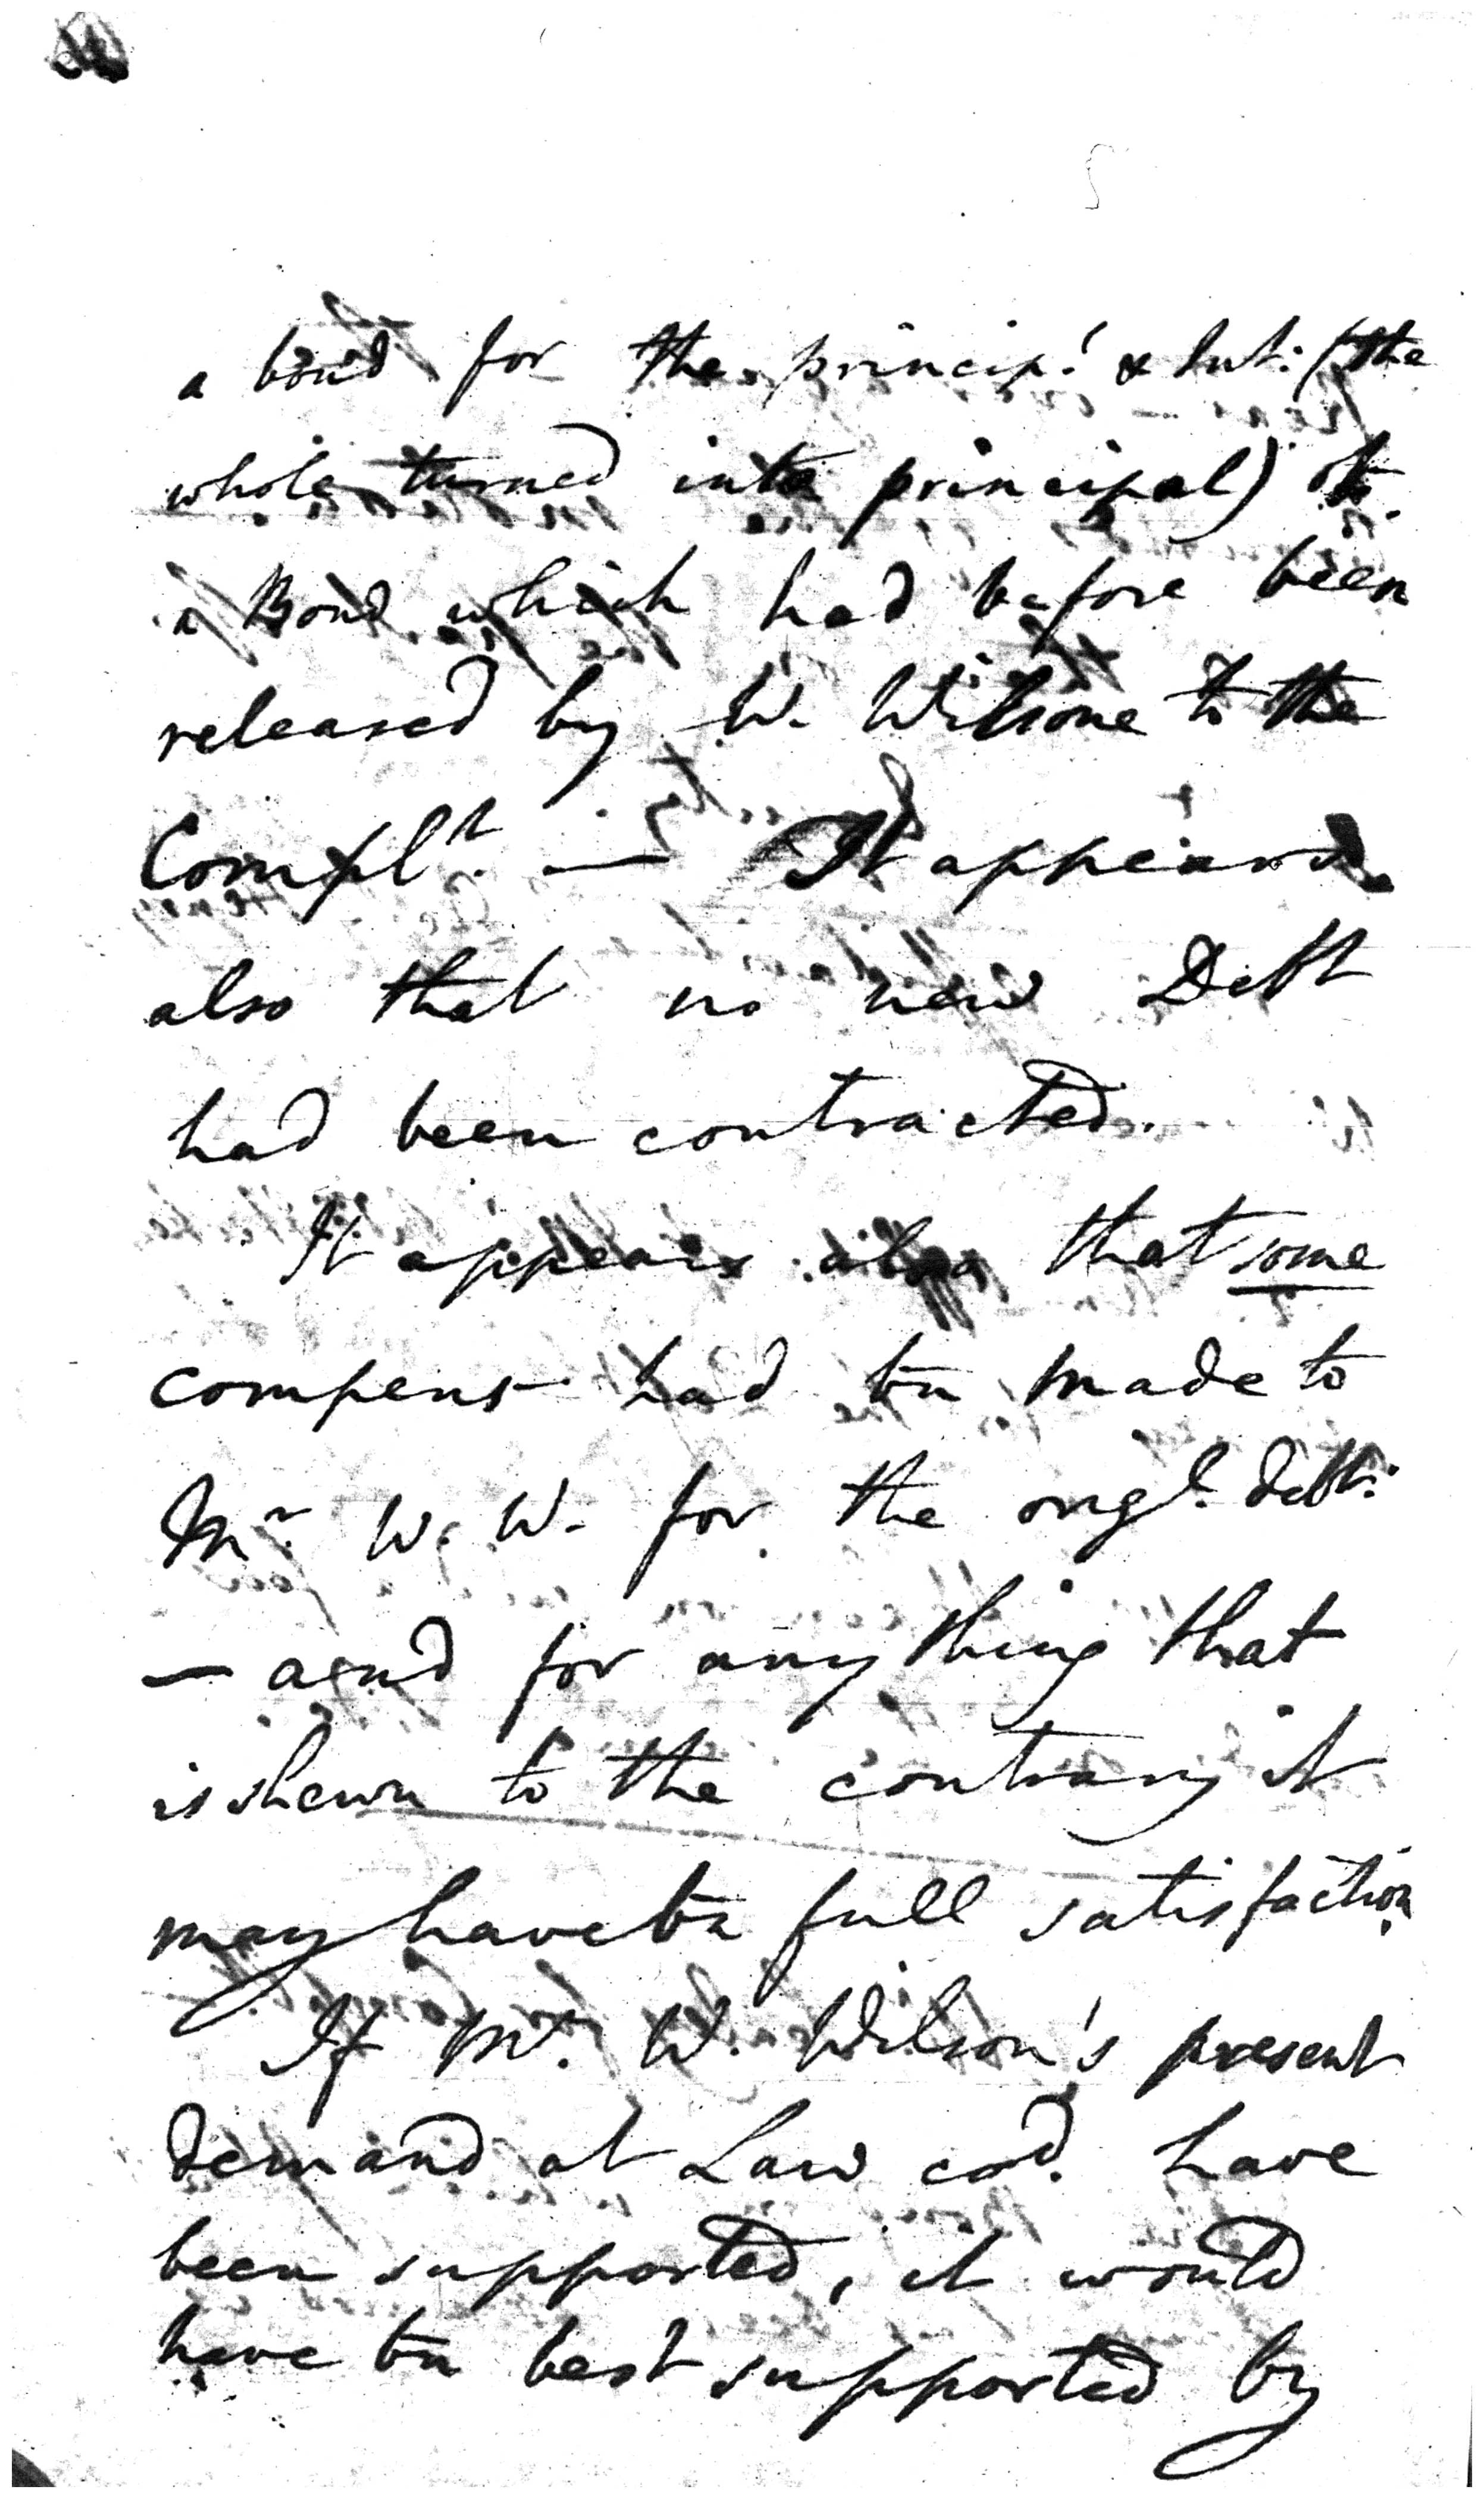 a bond for the princip.l & Int: (the
whole turned into principal) of
a Bond which had before been
released by W. Wilsone to the
Compl.t — It appears
also that no new Debt
had been contracted.
It appears also that some
compens. had bn made to
Mr. W. W. for the origl. debt:
— and for any thing that
is shewn to the contrary it
may have bn full satisfaction
If Mr. W. Wilson's present
demand at Law cod. have
been supported, it would
have bn best supported by